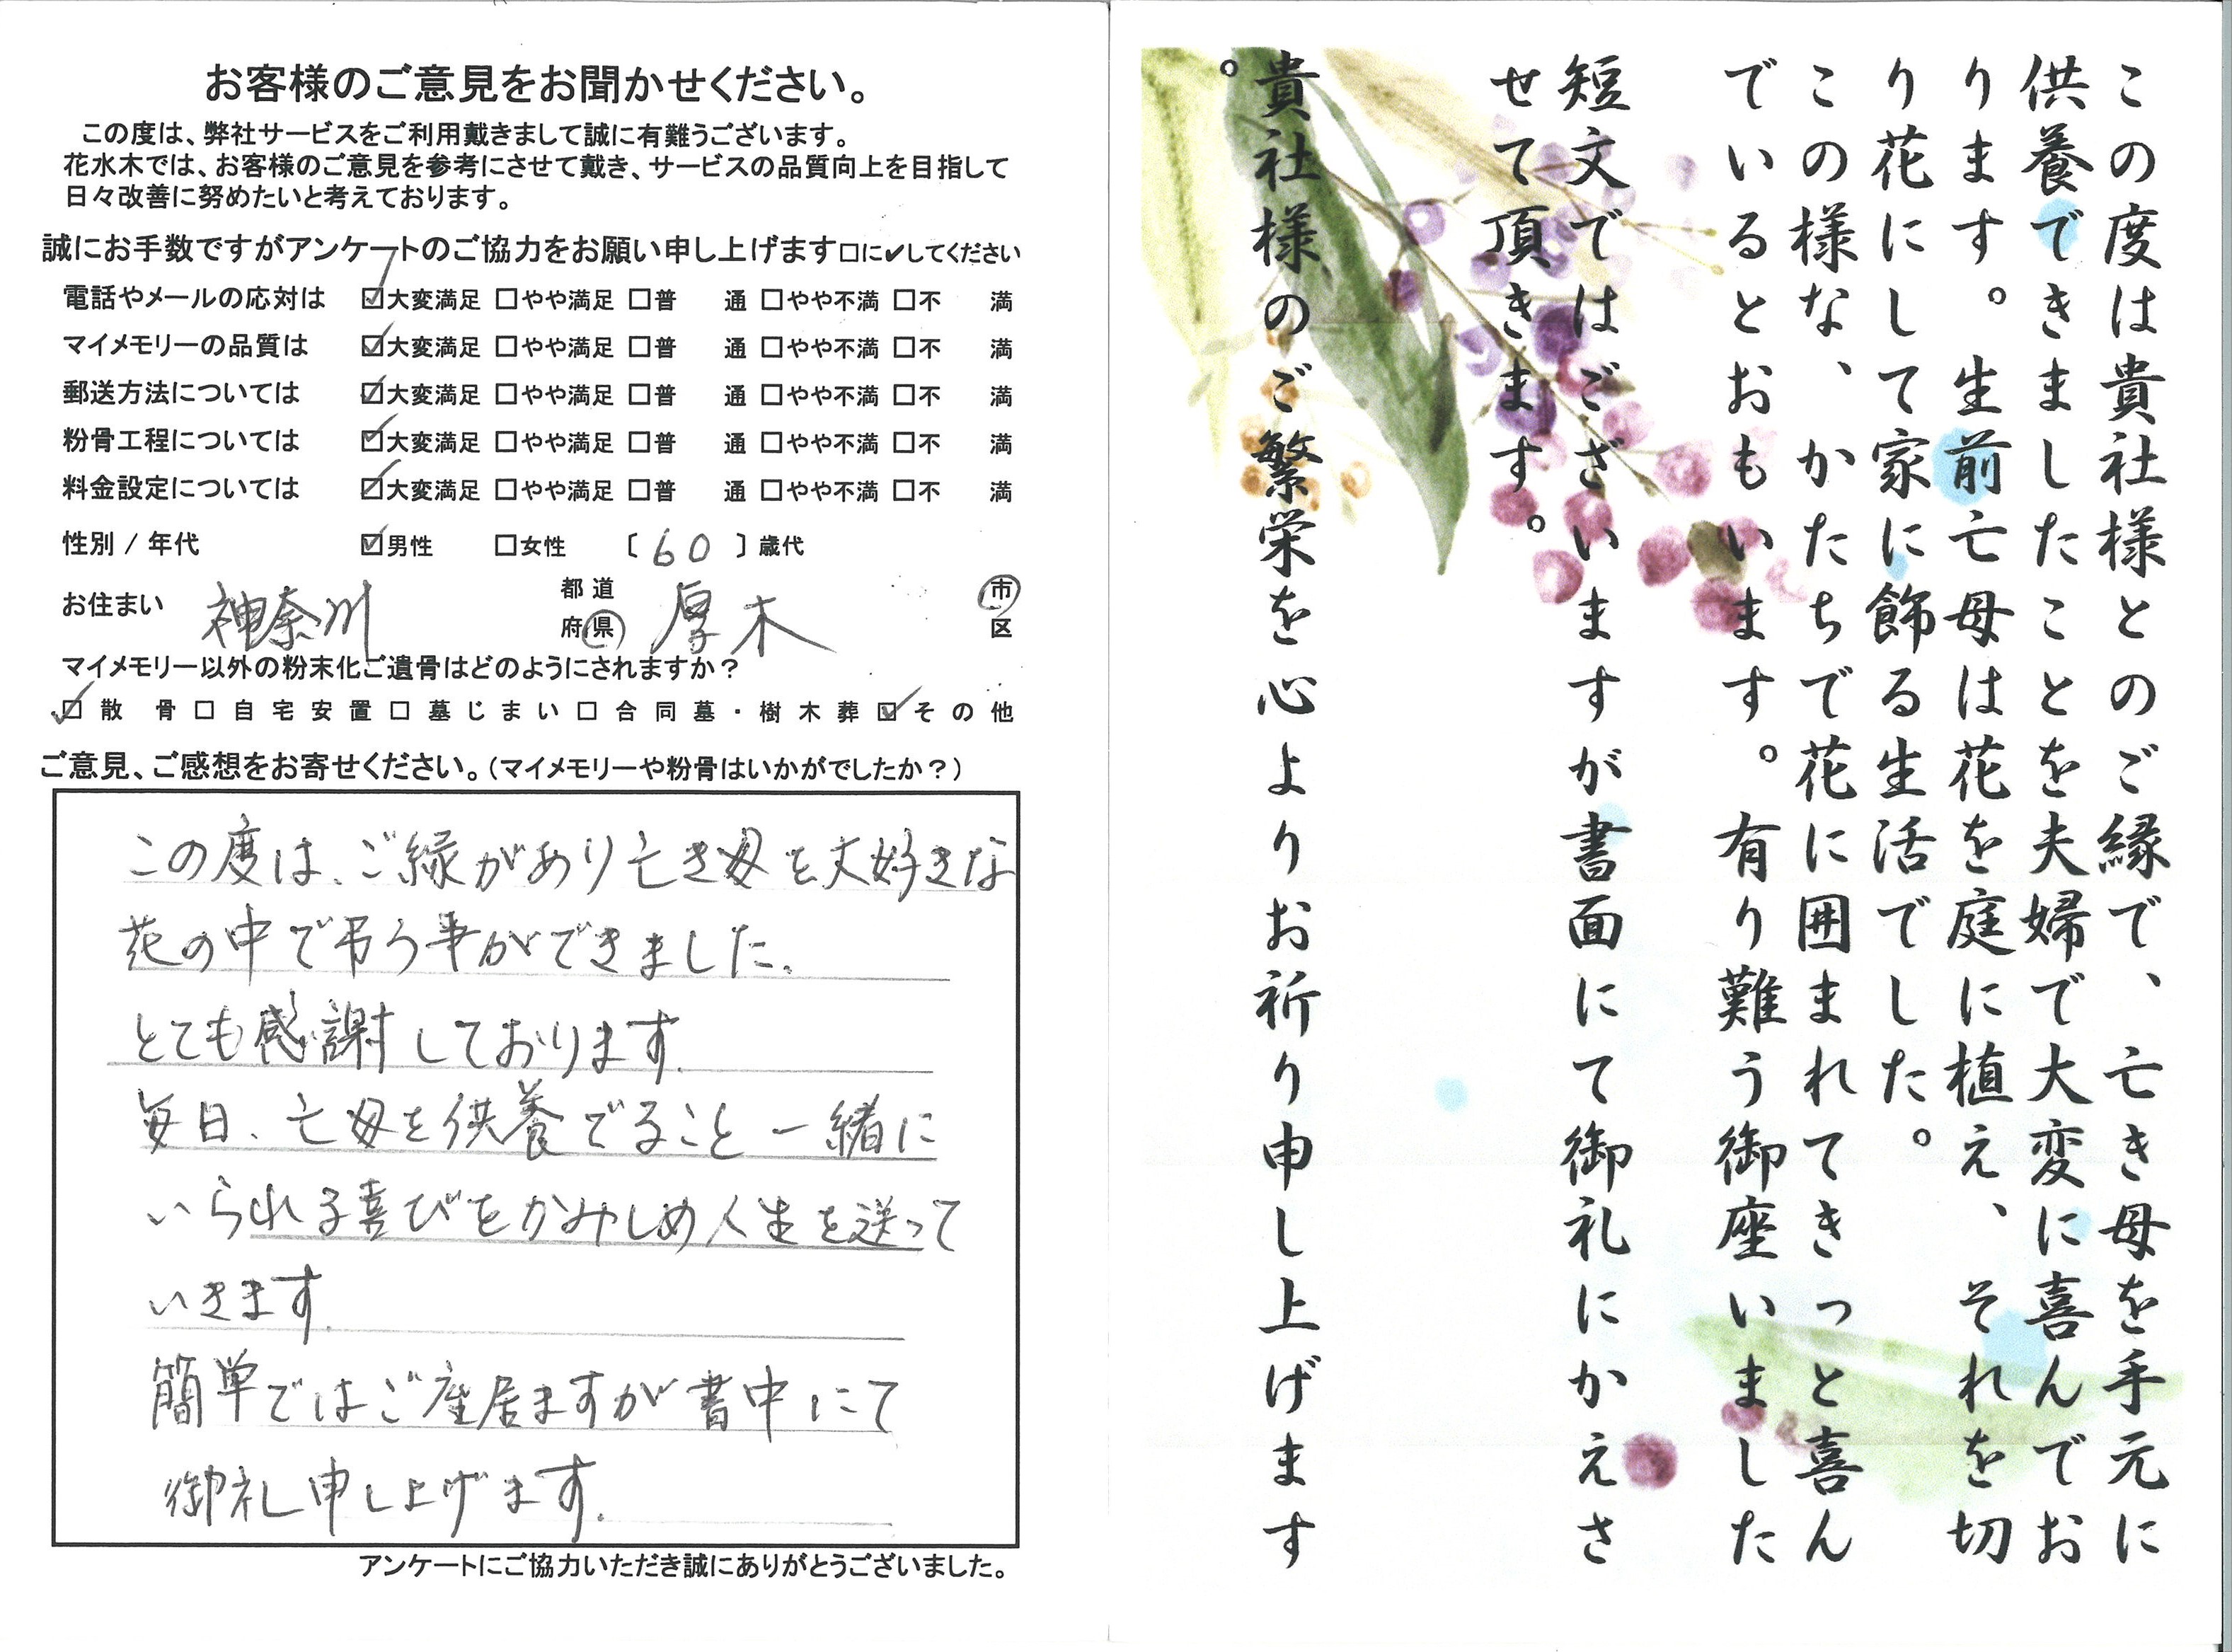 お客様のご意見をお聞かせください。
この度は、弊社サービスをご利用戴きまして誠に有難うございます。
花水木では、お客様のご意見を参考にさせて戴き、サービスの品質向上を目指して
日々改善に努めたいと考えております。
誠にお手数ですがアンケートのご協力をお願い申し上げます□に✔してください
電話やメールの応対は ☑大変満足 □やや満足 □普 通 □やや不満 □不 満
マイメモリーの品質は ☑大変満足 □やや満足 □普 通 □やや不満 □不 満
郵送方法については ☑大変満足 □やや満足 □普 通 □やや不満 □不 満
粉骨工程については ☑大変満足 □やや満足 □普 通 □やや不満 □不 満
料金設定については ☑大変満足 □やや満足 □普 通 □やや不満 □不 満
性別 / 年代 ☑男性 □女性 〔 60 〕歳代
お住まい 神奈川 都道府県 厚木 市区
マイメモリー以外の粉末化ご遺骨はどのようにされますか？
☑散骨 □自宅安置 □墓じまい □合同墓・樹木葬 ☑その他
ご意見、ご感想をお寄せください。（マイメモリーや粉骨はいかがでしたか？）
この度は、ご縁があり亡き母を大好きな
花の中で弔う事ができました。
とても感謝しております。
毎日、亡母を供養でること一緒に
いられる喜びをかみしめ人生を送って
いきます。
簡単ではご座居ますが書中にて
御礼申し上げます。
アンケートにご協力いただき誠にありがとうございました。
この度は貴社様とのご縁で、亡き母を手元に
供養できましたことを夫婦で大変に喜んでお
ります。生前亡母は花を庭に植え、それを切
り花にして家に飾る生活でした。
この様な、かたちで花に囲まれてきっと喜ん
でいるとおもいます。有り難う御座いました
短文ではございますが書面にて御礼にかえさ
せて頂きます。
貴社様のご繁栄を心よりお祈り申し上げます
。